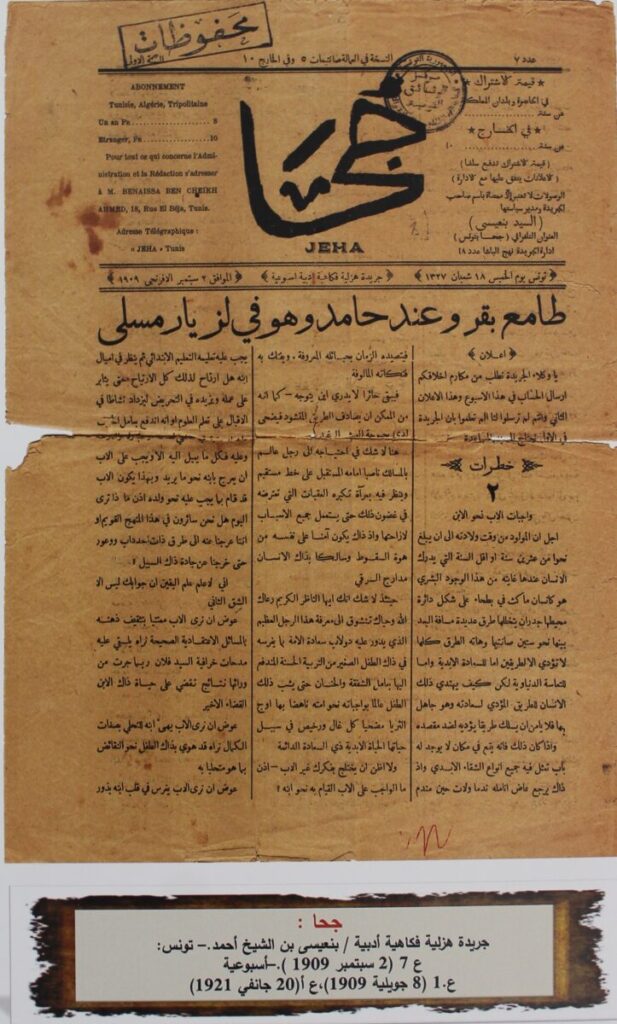 محفوظات
عدد ٧
النسخة في العمالة صانتيمات ٥ وفي الخارج ١٠
السنة الاولى
ABONNEMENT
Tunisie, Algérie, Tripolitaine
Un an Fr. 8
Etranger, Fr. 10
Pour tout ce qui concerne l'Admi-
nistration et la Rédaction s'adresser
à M. BENAISSA BEN CHEIKH
AHMED, 18, Rue El Béja, Tunis.
Adresse Télégraphique :
« JEHA » Tunis
جحا
JEHA
قيمة الاشتراك
في الحاضرة وبلدان المملكة
عن سنة
في الخارج
عن سنة ١٠
(قيمة الاشتراك تدفع سلفا)
(الاعلانات يتفق عليها مع الادارة)
الجريدة ومدير سياستها
(السيد بنعيسى)
العنوان التلغرافي (جحا بتونس)
ادارة الجريدة نهج الباشا عدد ١٨
تونس يوم الخميس ١٨ شعبان ١٣٢٧
جريدة هزلية فكاهية ادبية اسبوعية
الموافق ٢ سبتمبر الافرنجي ١٩٠٩
طامع بقر وعند حامد وهو في لز يار مسلى
اعلان
يا وكلاء الجريدة نطلب من مكارم اخلاقكم
ارسال الحساب في هذا الاسبوع وهذا الاعلان
الثاني وانتم لم ترسلوا لنا الم تعلموا بان الجريدة
خطرات
٢
واجبات الاب نحو الابن
اجل ان المولود من وقت ولادته الى ان يبلغ
نحوا من عشرين سنة او اقل السنة التي يدرك
الانسان عندها غايته من هذا الوجود البشري
هو كانسان ماكث في بطحاء على شكل دائرة
محيطها جدران يتخللها طرق عديدة مسافة البعد
بينها نحو ستين سانتيما وهاته الطرق كلها
لا تؤدي الا لطريقين اما للسعادة الابدية واما
للتعاسة الدنياوية لكن كيف يهتدي ذلك
الانسان للطريق المؤدي لسعادته وهو جاهل
بها فلا يامن ان يسلك طريقا يؤديه لضد مقصده
واذا كان ذلك فانه يقع في مكان لا يوجد له
باب تمثل فيه جميع انواع الشقاء الابدي واذ
ذاك يرجع عاض انامله ندما ولات حين مندم
فتتصيده الزمان بحبائله المعروفة. ويفتك به
فتكاته المالوفة
فيبقى حائرا لا يدري اين يتوجه – كما انه
من الممكن ان يصادف الطريق المقشود فيضحى
هنا لا شك في احتياجه الى رجل عالم
بالمسالك ناصبا امامه المستقبل على خط مستقيم
وينظر فيه بمرآة تفكيره العقبات التي تعترضه
في غضون ذلك حتى يستعمل جميع الاسباب
لازاحتها واذ ذاك يكون آمنا على نفسه من
هوة السقوط وسالكا بذاك الانسان
مدارج الرقي
حينئذ لا شك انك ايها الناظر الكريم رعاك
الله وحياك تتشوق الى معرفة هذا الرجل العظيم
الذي يدور عليه دولاب سعادة الامة بما يغرسه
في ذاك الطفل الصغير من التربية الحسنة المندفع
اليها بعامل الشفقة والحنان حتى يشب ذلك
الطفل عالما بواجباته نحو امته ناهضا بها اوج
الثريا مضحيا كل غال ورخيص في سبيل
حياتها الحياة الابدية ذي السعادة الدائمة
ولا اظن ان يختلج بفكرك غير الاب – اذن
ما الواجب على الاب القيام به نحو ابنه ؟
يجب عليه تعليمه التعليم الابتدائي ثم ينظر في اميال
ابنه هل ارتاح لذلك كل الارتياح حتى يثابر
على عمله ويزيده في التحريض ليزداد نشاطا في
وعليه فكل ما يميل اليه الا ويجب على الاب
ان يعرج بابنه نحو ما يريد وبهذا يكون الاب
قد قام بما يجب عليه نحو ولده اذن ما ذا ترى
اليوم هل نحن سائرون في هذا المنهج القويم او
اننا عرجنا عنه الى طرق ذات احدداب ووعور
حتى خرجنا عن جادة ذاك السبيل ؟
اني لاعلم علم اليقين ان جوابك ليس الا
الشق الثاني
عوض ان نرى الاب معتنيا بتثقيف ذهنه
بالمسائل الاعتقادية الصحيحة نراه يلقي عليه
مدحات خرافية السيد فلان ربما جرت من
ورائها نتائج تقضي على حياة ذاك الابن
القضاء الاخير
عوض ان نرى الاب يهيء ابنه للتحلي بصفات
الكمال نراه قد هوي بذاك الطفل نحو النقائص
بما هو متحليا به
عوض ان نرى الاب يغرس في قلب ابنه بذور
جحا :
جريدة هزلية فكاهية أدبية / بنعيسى بن الشيخ أحمد.– تونس:
ع 7 (2 سبتمبر 1909 ).–أسبوعية
ع.1 (8 جويلية 1909)،ع أ(20 جانفي 1921)